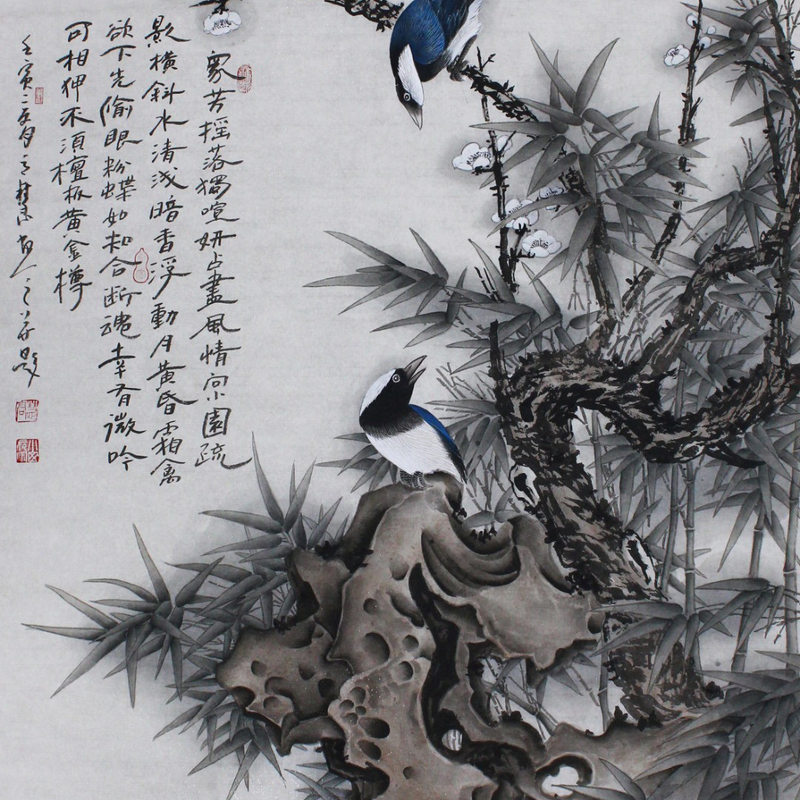 眾芳摇落獨喧妍占盡風情向小園疏
影橫斜水清浅暗香浮動月黄昏霜禽
欲下先偷眼粉蝶如知合断魂幸有微吟
可相狎不須檀板黄金樽
壬寅 題